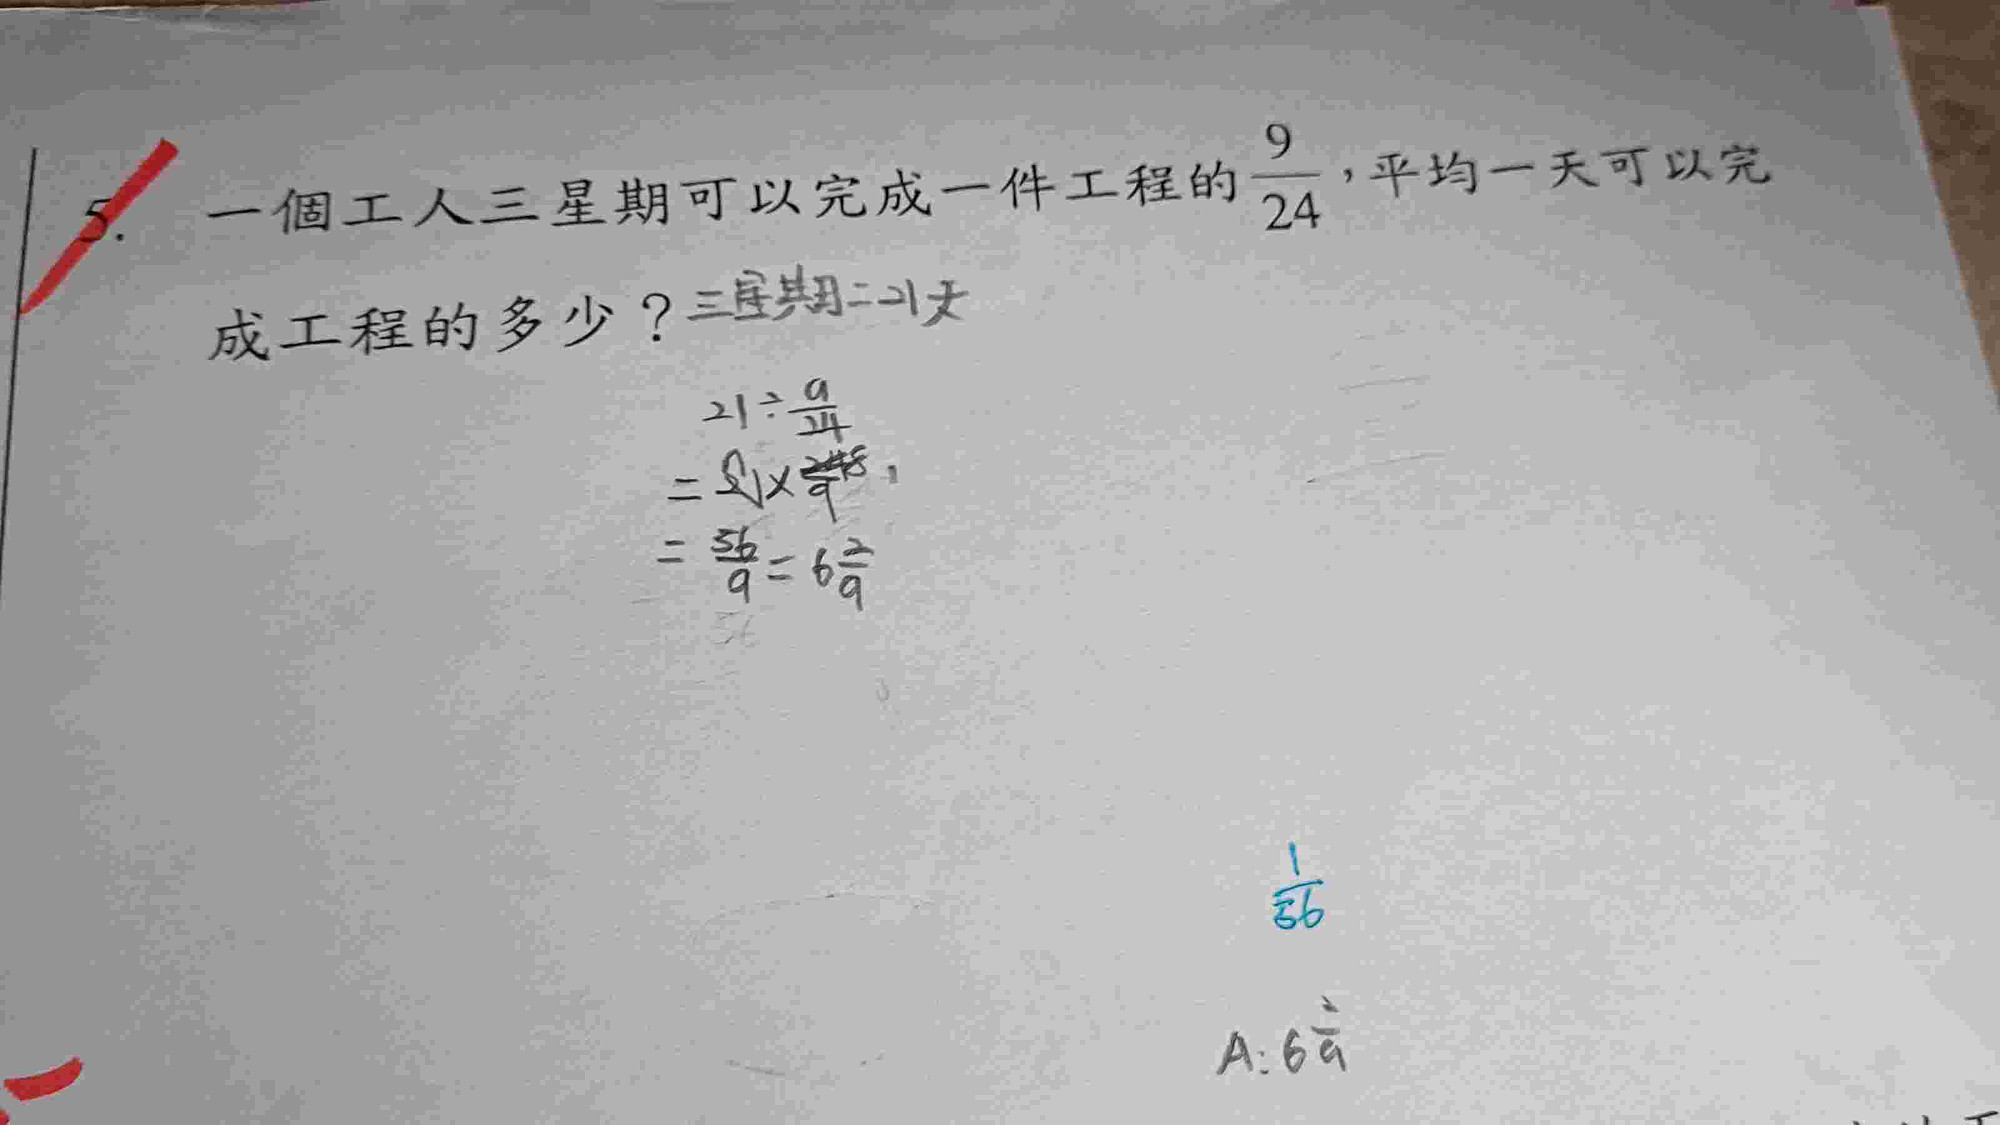 5. 一個工人三星期可以完成一件工程的 9/24，平均一天可以完
成工程的多少？三星期=21天
21÷9/24
=21×24 8/9
=56/9=6 2/9
56
1/56
A: 6 2/9